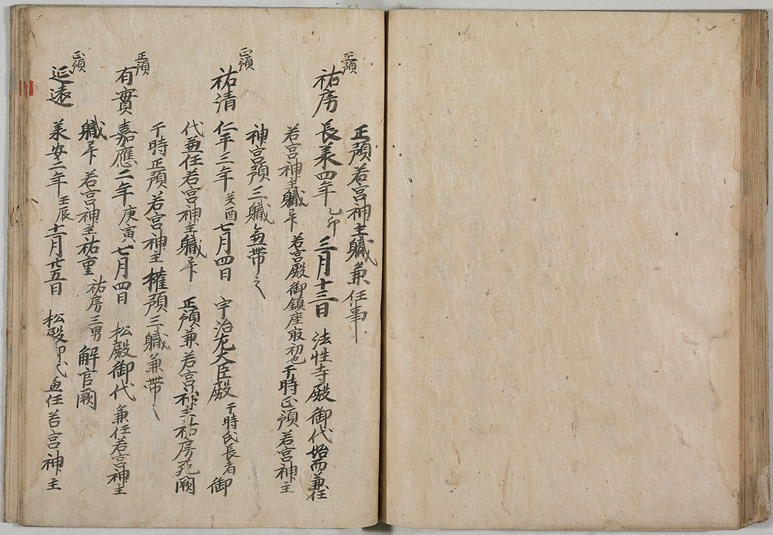 正預若宮神主職兼任事
正預
祐房 長承四年乙卯三月十三日 法性寺殿御代始而兼任
若宮神主職畢 若宮殿御鎮座最初也于時正預若宮神主
神宮預三職兼帯之
正預
祐清 仁平三年癸酉七月四日 宇治左大臣殿于時氏長者御
代兼任若宮神主職畢 正預兼若宮神主祐房死闕
于時正預若宮神主権預三職兼帯之
正預
有實 嘉應二年庚寅七月四日 松殿御代兼任若宮神主
職畢 若宮神主祐重祐房三男解官闕
正預
延遠 承安二年壬辰十二月廿五日 松殿御代兼任若宮神主